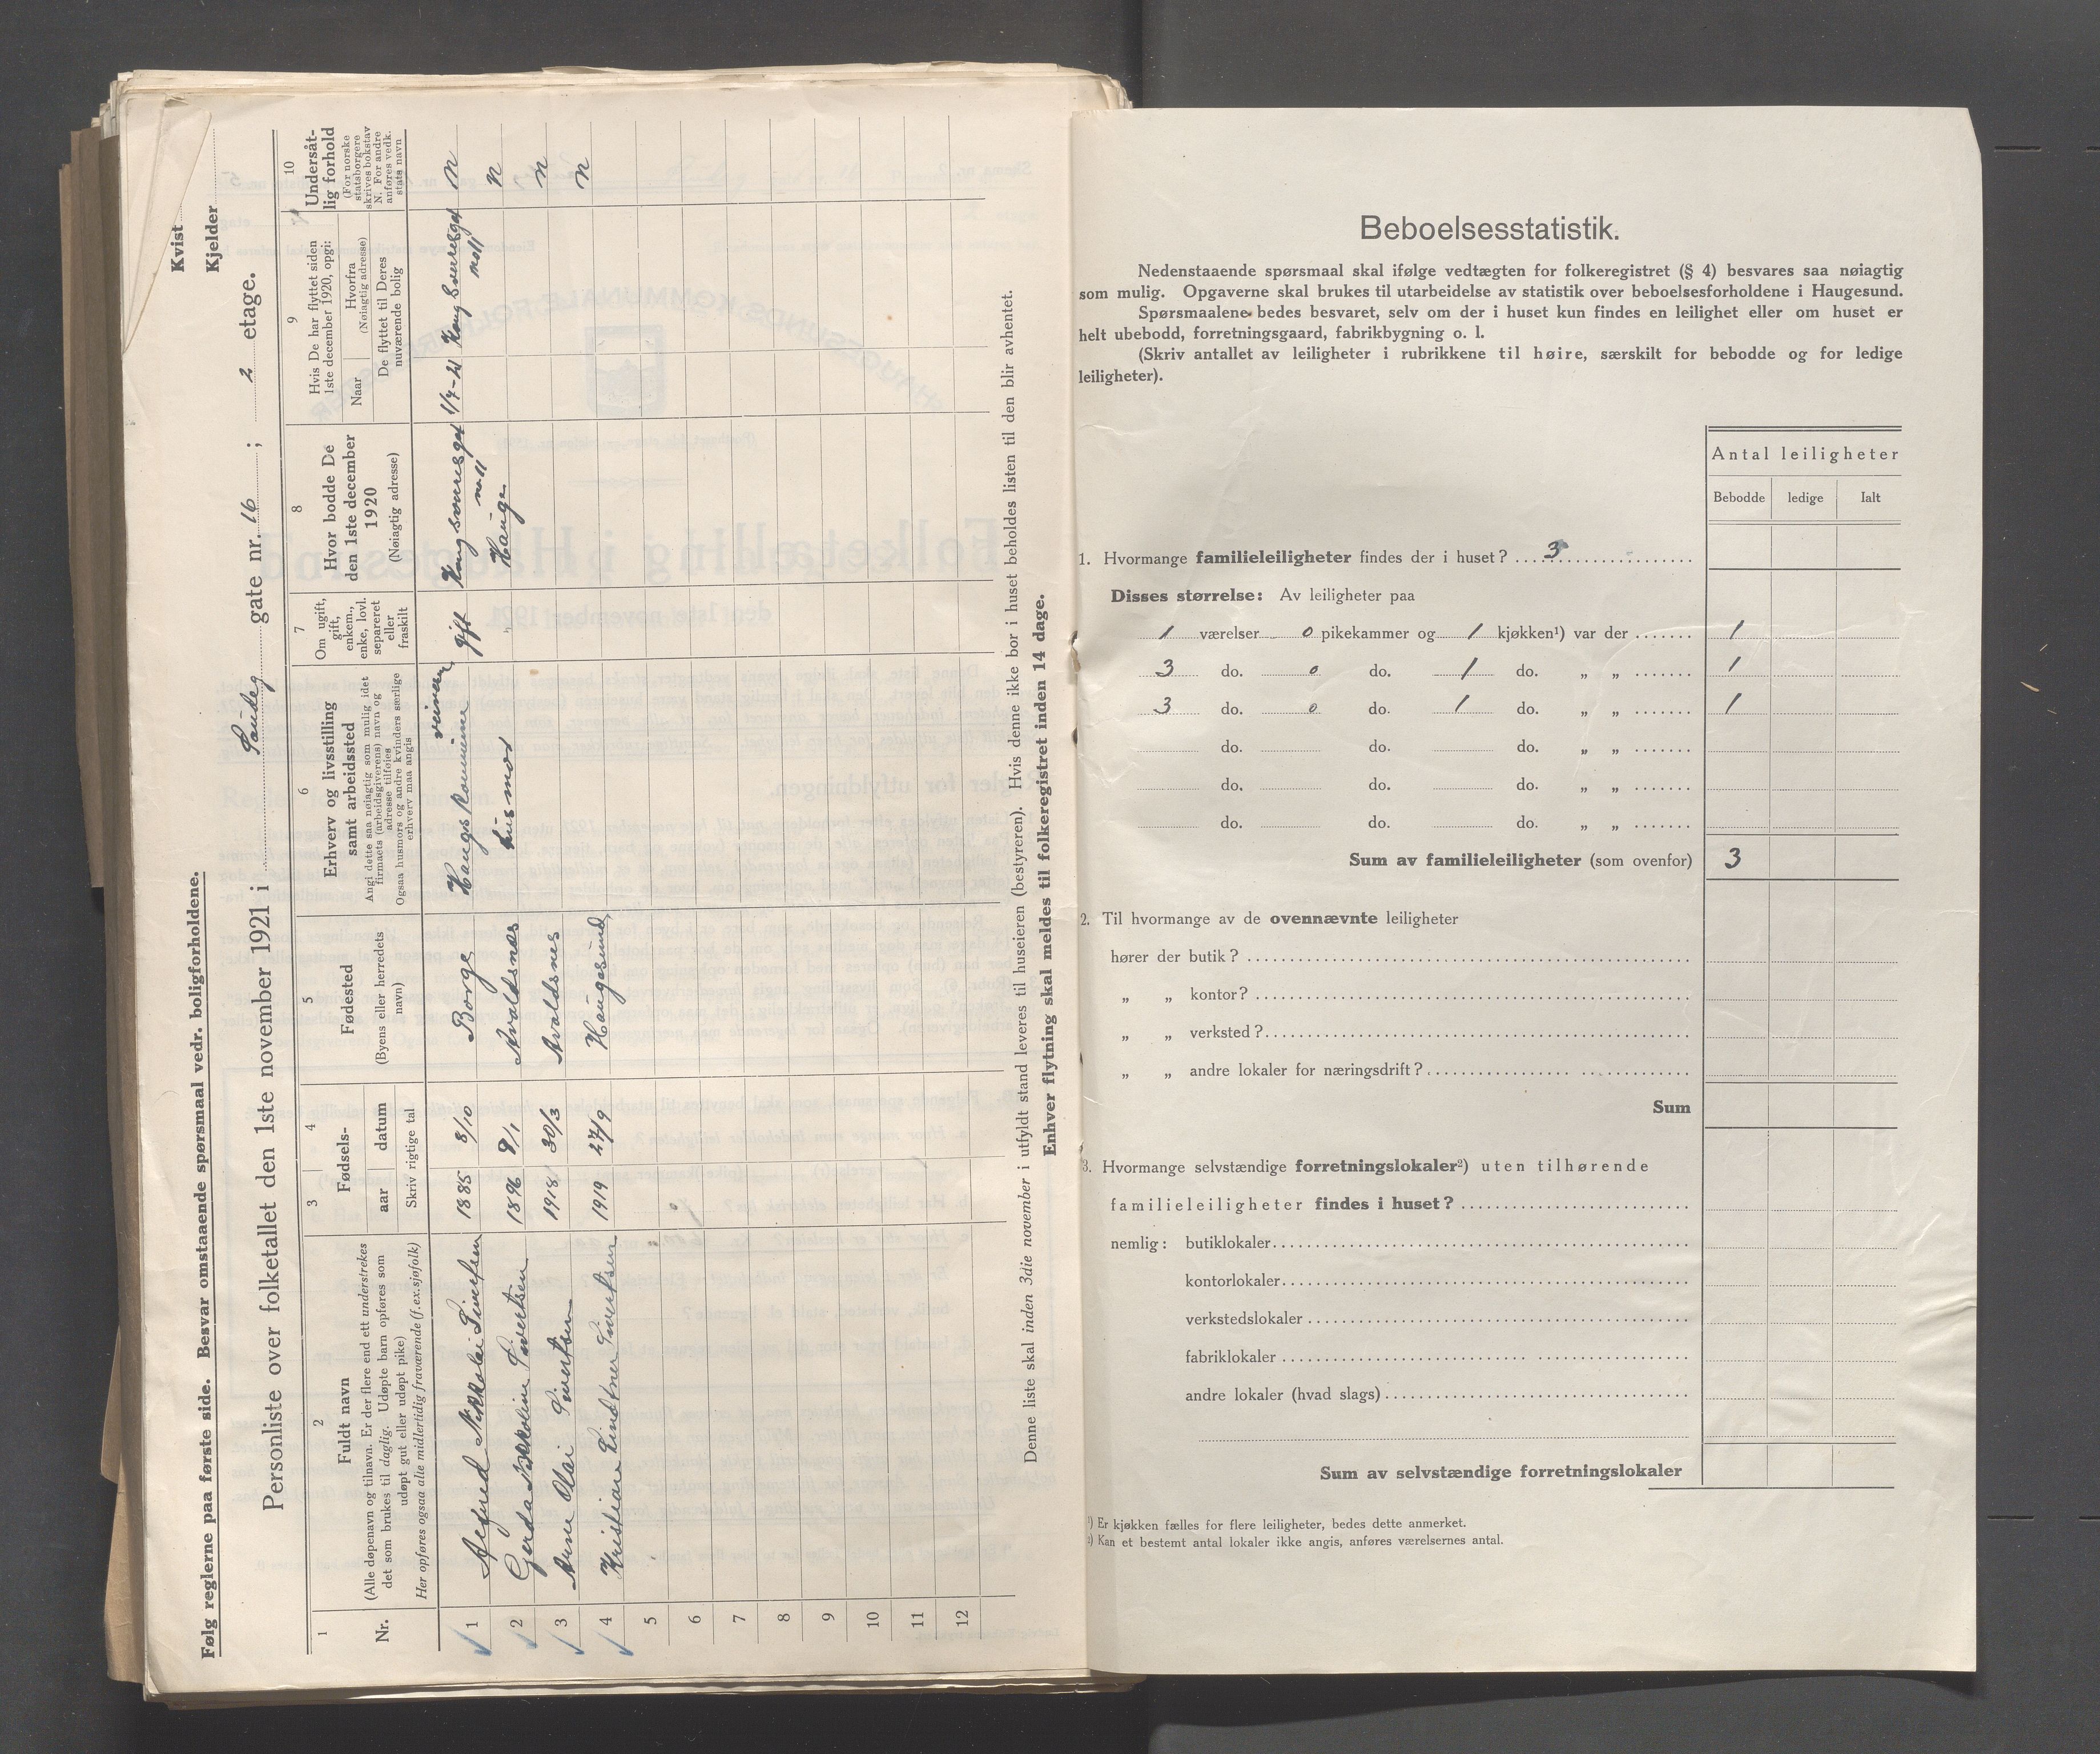 Følg reglerne paa første side. Besvar omstaaende spørsmaal vedr. boligforholdene.
Kvist
Kjelder
Personliste over folketallet den 1ste november 1921 i Saudeg gate nr. 16 ; 2 etage.
1
2
3
4
5
6
7
8
9
10
Nr.
Fuldt navn
(Alle døpenavn og tilnavn. Er der flere end ett understrekes
det som brukes til daglig. Udøpte barn opføres som
udøpt gut eller udøpt pike)
Her opføres ogsaa alle midlertidig fraværende (f.ex.sjøfolk)
Fødsels-
aar
datum
Skriv rigtige tal
Fødested
(Byens eller herredets
navn)
Erhverv og livsstilling
samt arbeidssted
Angi dette saa nøiagtig som mulig idet
firmaets (arbeidsgiverens) navn og
adresse tilføies
Ogsaa husmors og andre kvinders særlige
erhverv maa angis
Om ugift,
gift,
enkem.,
enke, lovl.
separeret
eller
fraskilt
Hvor bodde De
den 1ste december
1920
(Nøiagtig adresse)
Hvis De har flyttet siden
1ste december 1920, opgi:
Naar
Hvorfra
(Nøiagtig adresse)
De flyttet til Deres
nuværende bolig
Undersåt-
lig forhold
(For norske
statsborgere
skrives bokstav
N. For andre
anføres vedk.
stats navn
1 Alfred Nikkolai Sivertsen 1885 8/10 Borge Haugs Kommune gift n
2 Gerda Sivertsen 1896 9/1 Avaldsnes husmor Hauge n
3 Arne Olai Sivertsen 1918 30/3 Avaldsnes n
4 Kristian Lindtner Sivertsen 1919 27/9 Haugesund n
5
6
7
8
9
10
11
12
Denne liste skal inden 3die november i utfyldt stand leveres til huseieren (bestyreren). Hvis denne ikke bor i huset beholdes listen til den blir avhentet.
Enhver flytning skal meldes til folkeregistret inden 14 dage.
Beboelsesstatistik.
Nedenstaaende spørsmaal skal ifølge vedtægten for folkeregistret (§ 4) besvares saa nøiagtig
som mulig. Opgaverne skal brukes til utarbeidelse av statistik over beboelsesforholdene i Haugesund.
Spørsmaalene bedes besvaret, selv om der i huset kun findes en leilighet eller om huset er
helt ubebodd, forretningsgaard, fabrikbygning o. l.
(Skriv antallet av leiligheter i rubrikkene til høire, særskilt for bebodde og for ledige
leiligheter).
Antal leiligheter
Bebodde ledige Ialt
1. Hvormange familieleiligheter findes der i huset? 3
Disses størrelse: Av leiligheter paa
1 værelser 0 pikekammer og 1 kjøkken¹) var der 1
3 do. 0 do. 1 do. „ „ 1
3 do. 0 do. 1 do. „ „ 1
do. do. do. „ „
do. do. do. „ „
do. do. do. „ „
Sum av familieleiligheter (som ovenfor) 3
2. Til hvormange av de ovennævnte leiligheter
hører der butik?
„ „ kontor?
„ „ verksted?
„ „ andre lokaler for næringsdrift?
Sum
3. Hvormange selvstændige forretningslokaler²) uten tilhørende
familieleiligheter findes i huset?
nemlig: butiklokaler
kontorlokaler
verkstedslokaler
fabriklokaler
andre lokaler (hvad slags)
Sum av selvstændige forretningslokaler
¹) Er kjøkken fælles for flere leiligheter, bedes dette anmerket.
²) Kan et bestemt antal lokaler ikke angis, anføres værelsernes antal.